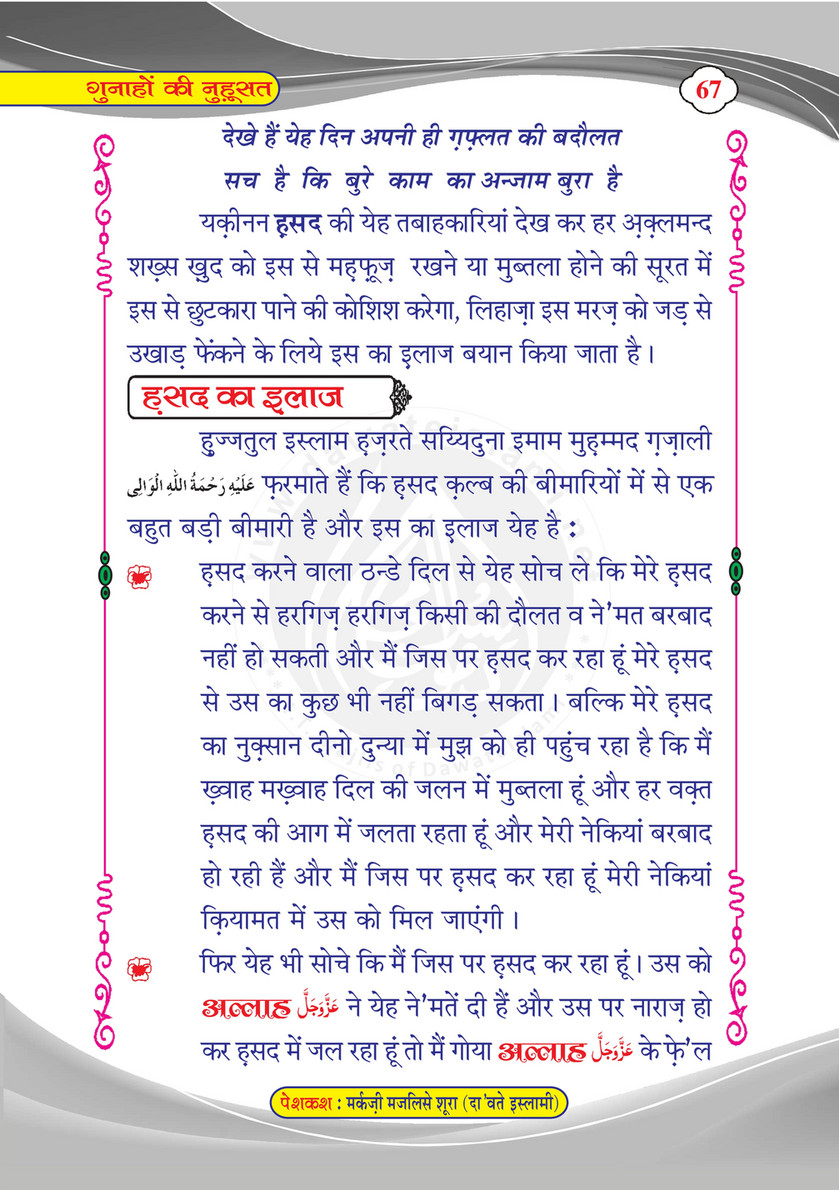 गुनाहों की नुहूसत
67
देखे हैं येह दिन अपनी ही ग़फ़्लत की बदौलत
सच है कि बुरे काम का अन्जाम बुरा है
यक़ीनन ह़सद की येह तबाहकारियां देख कर हर अ़क़्लमन्द
शख़्स ख़ुद को इस से मह़फ़ूज़ रखने या मुब्तला होने की सूरत में
इस से छुटकारा पाने की कोशिश करेगा, लिहाज़ा इस मरज़ को जड़ से
उखाड़ फेंकने के लिये इस का इ़लाज बयान किया जाता है ।
ह़सद का इ़लाज
हु़ज्जतुल इस्लाम ह़ज़रते सय्यिदुना इमाम मुह़म्मद ग़ज़ाली
عَلَيْهِ رَحْمَةُ اللهِ الْوَالِى फ़रमाते हैं कि ह़सद क़ल्ब की बीमारियों में से एक
बहुत बड़ी बीमारी है और इस का इ़लाज येह है :
ह़सद करने वाला ठन्डे दिल से येह सोच ले कि मेरे ह़सद
करने से हरगिज़ हरगिज़ किसी की दौलत व ने'मत बरबाद
नहीं हो सकती और मैं जिस पर ह़सद कर रहा हूं मेरे ह़सद
से उस का कुछ भी नहीं बिगड़ सकता । बल्कि मेरे ह़सद
का नुक़्सान दीनो दुन्या में मुझ को ही पहुंच रहा है कि मैं
ख़्वाह मख़्वाह दिल की जलन में मुब्तला हूं और हर वक़्त
ह़सद की आग में जलता रहता हूं और मेरी नेकियां बरबाद
हो रही हैं और मैं जिस पर ह़सद कर रहा हूं मेरी नेकियां
क़ियामत में उस को मिल जाएंगी ।
फिर येह भी सोचे कि मैं जिस पर ह़सद कर रहा हूं। उस को
अल्लाह عَزَّوَجَلَّ ने येह ने'मतें दी हैं और उस पर नाराज़ हो
कर ह़सद में जल रहा हूं तो मैं गोया अल्लाह عَزَّوَجَلَّ के फ़े'ल
पेशकश : मर्कज़ी मजलिसे शूरा (दा'वते इस्लामी)